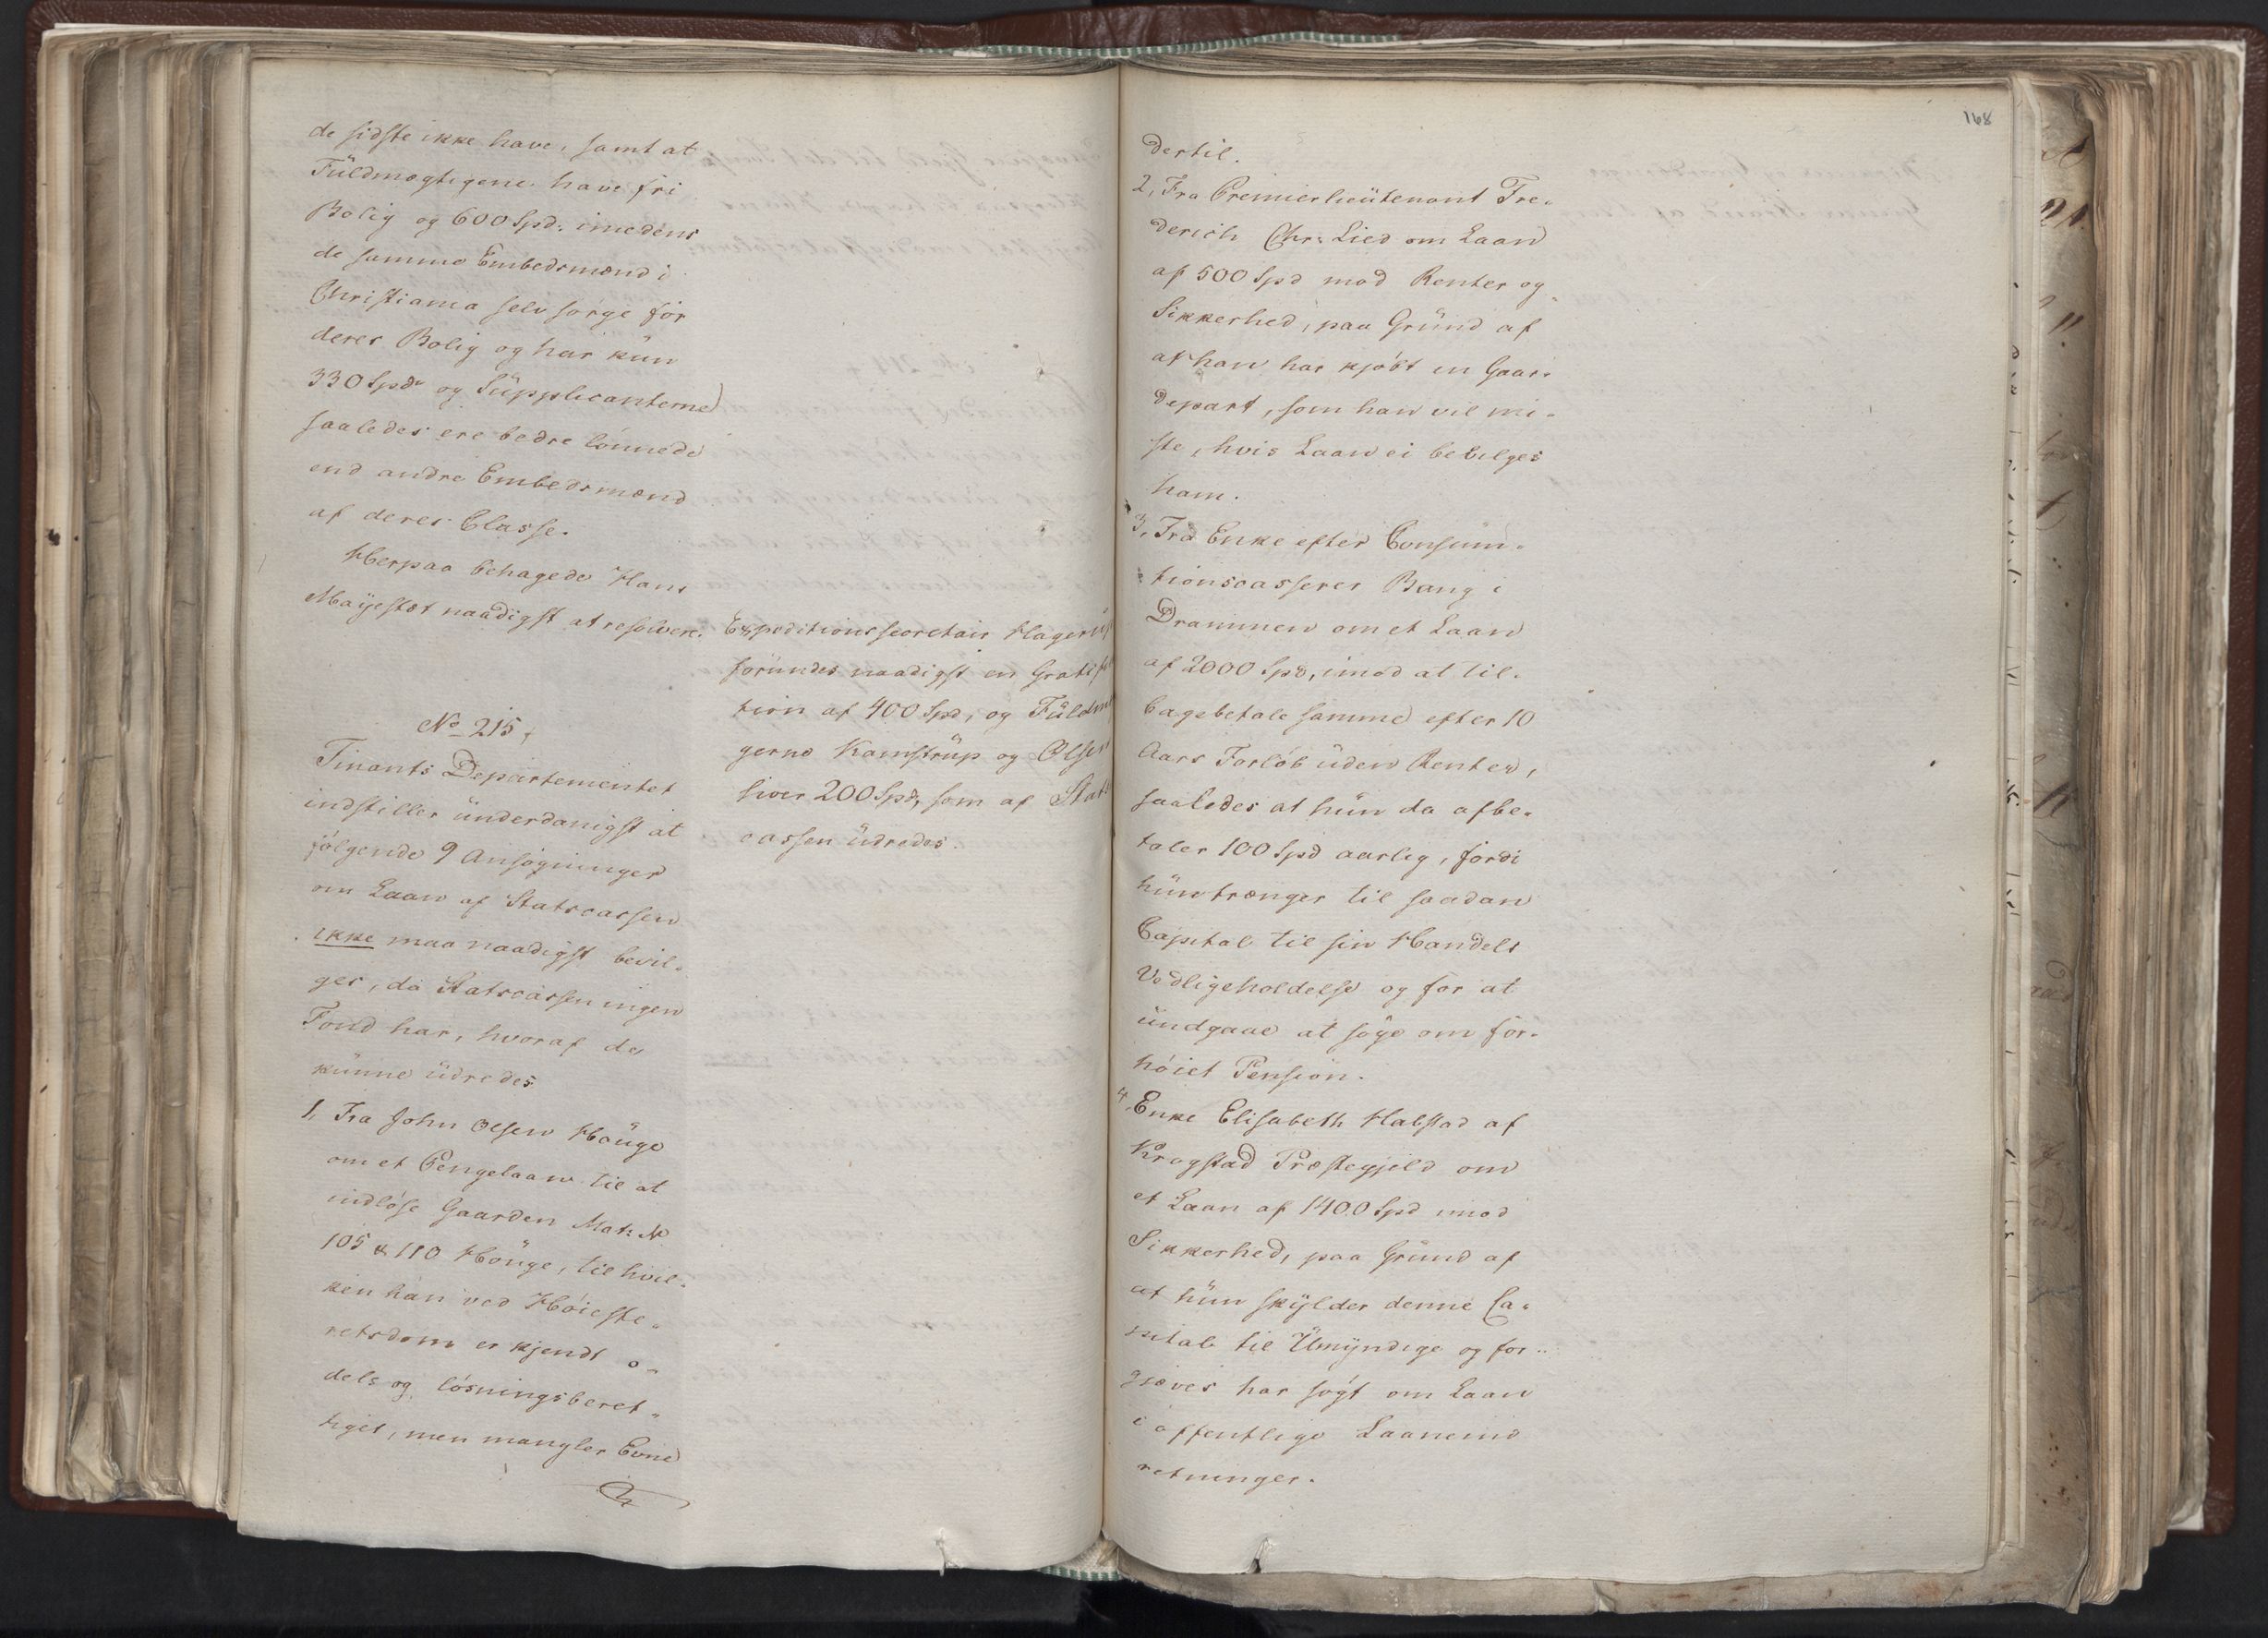 de sidste ikke have, samt at
Füldmægtigene have fri
Bolig og 600 Spd: imedens
de samme Embedsmænd i
Christiania selv sörge for
deres Bolig og har kün
330 Spdr og Süpplicanterne
saaledes ere bedre lönnede
end andre Embedsmænd
af deres Classe.
Herpaa behagede Hans
Mayestæt naadigst at resolvere.
Expeditionssecretair Hagerüp
forundes naadigst en Gratifica
tion af 400 Spd, og Füldmæ
gerne Kamstrüp og Olsen
hver 200 Spd, som af Stats
cassen üdredes.
No 215,
Finants Departementet
indstiller ünderdanigst at
fölgende 9 Ansögninger
om Laan af Statscassen
ikke maa naadigst bevil-
ges, da Statscassen ingen
Fond har, hvoraf de
künne üdredes
1, Fra John Olsen Houge
om et Pengelaan til at
indlöse Gaarden Mat: No
105 & 110 Houge, til hvil-
ken han ved Höieste-
retsdom er kjendt o-
dels og lösningsberet-
tiget, men mangler Evne
168
dertil.
2, Fra Premierlieütenant Fre-
derich Chr: Lied om Laan
af 500 Spd mod Renter og
Sikkerhed, paa Gründ af
at han har kjöbt en Gaar-
depart, som han vil mi-
ste, hvis Laan ei bevilges
ham.
3, Fra Enke efter Consum-
tionscasserer Bang i
Drammen om et Laan
af 2000 Spd, imod at til-
bagebetale samme efter 10
Aars Forlöb üden Renter,
saaledes at hün da afbe-
taler 100 Spd aarlig, fordi
hün trænger til saadan
Capital til sin Handels
Vedligeholdelse og for at
ündgaae at söge om for-
höiet Pension.
4, Enke Elisabeth Halstad af
Krogstad Præstegjeld om
et Laan af 1400 Spd imod
Sikkerhed, paa Gründ af
at hün skÿlder denne Ca-
pital til Ümÿndige og for-
gjæves har sögt om Laan
i offentlige Laaneind
retninger.